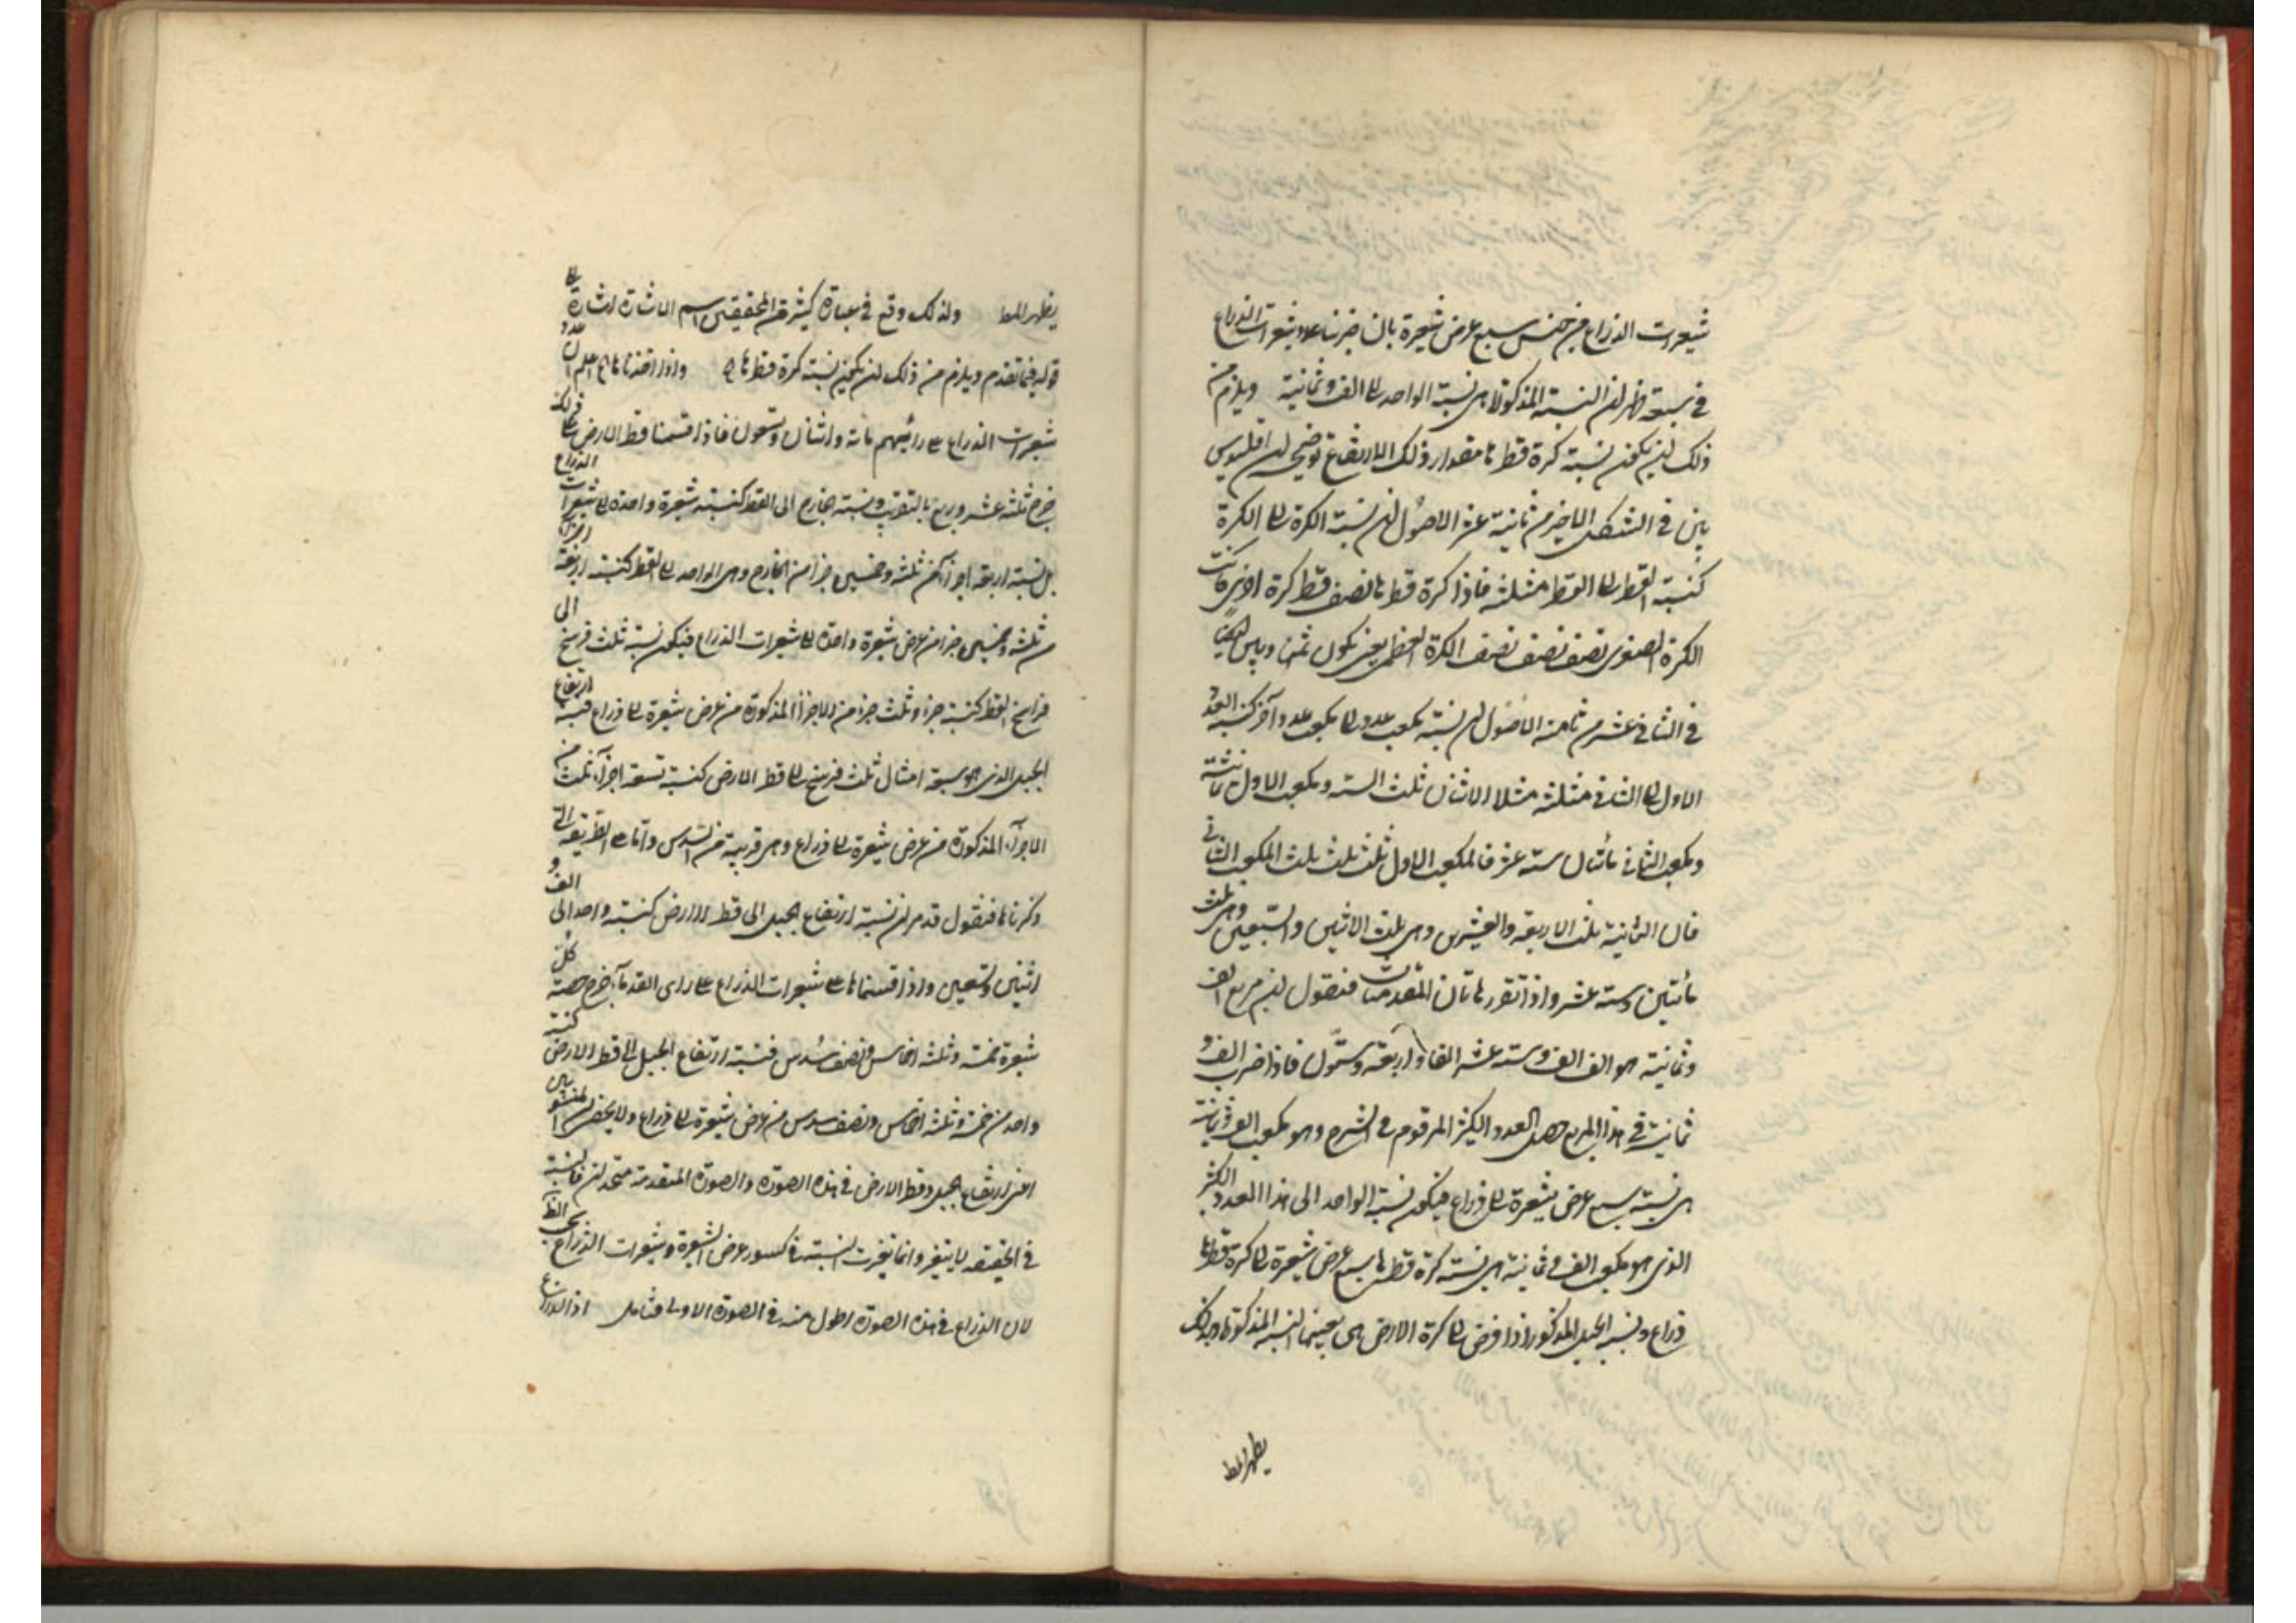 شعيرات الذراع من جنس سبع عرض شعيرة بان ضربنا عدد شعيرات الذراع
في سبعة ظهر ان النسبة المذكورة هى نسبة الواحد الى الف وثمانية ويلزم من
ذلك ان يكون نسبة كرة قطرها مقدار ذلك الارتفاع توضيحه ان اقليدس
بين في الشكل الاخير من ثانية عشر الاصول ان نسبة الكرة الى الكرة
كنسبة القطر الى القطر مثلثة فاذا كرة قطرها نصف قطر كرة اخرى كانت
الكرة الصغرى نصف نصف نصف الكرة العظمى يعنى يكون ثمنها وبين ايضا
في الثانى عشر من ثامنة الاصول ان نسبة مكعب عدد الى مكعب عدد آخر كنسبة العدد
الاول الى الثانى مثلثة مثلا الاثنان ثلث الستة ومكعب الاول ثمانية
ومكعب الثانى مائتان ستة عشر فالمكعب الاول ثلث ثلث ثلث المكعب الثانى
فان الثمانية ثلث الاربعة والعشرين وهى ثلث الاثنين والسبعين وهى ثلث
مأتين وستة عشر واذا تقرر هاتان المقدمتان فنقول ان مربع الف
وثمانية هو الف الف وستة عشر الفا واربعة وستون فاذا ضرب الف و
ثمانية في هذا المربع حصل العدد الكثير المرقوم في الشرح وهو مكعب الف وثمانية
هى نسبة سبع عرض شعيرة الى ذراع فيكون نسبة الواحد الى هذا العدد الكثير
الذى هو مكعب الف وثمانية هى نسبة كرة قطرها سبع عرض شعيرة الى كرة قطرها
ذراع ونسبة الجبل المذكور اذا فرض كرة الى كرة الارض هى بعينها النسبة المذكورة
يظهر للمط
يظهر للمط ولذلك وقع في عبارة كثير من المحققين اسم الاشارة اشارة الى
قوله فيما تقدم ويلزم من ذلك ان يكون نسبة كرة قطرها واذا اخذنا اعلم ان عدد
شعيرات الذراع على رأيهم مائة واثنان وتسعون فاذا قسمنا قطر الارض على ذلك
خرج ثلثة عشر وربع بالتقريب ونسبة الخارج الى القطر كنسبة شعيرة واحدة الى شعيرات الذراع
بل نسبة اربعة اجزآء من ثلثة وخمسين جزأ من الخارج وهى الواحد الى القطر كنسبة اربعة اجزآء
من ثلثة وخمسين جزأ من عرض شعيرة واحدة الى شعيرات الذراع فيكون نسبة ثلث فرسخ الى
فراسخ القطر كنسبة جزء وثلث جزء من الاجزآء المذكورة من عرض شعيرة الى ذراع فنسبة ارتفاع
الجبل الذى هو سبعة امثال ثلث فرسخ الى قطر الارض كنسبة تسعة اجزآء وثلث من
الاجزآء المذكورة من عرض شعيرة الى ذراع وهى قريبة من السدس واما على الطريقة التى
ذكرناها فنقول قد مر ان نسبة ارتفاع الجبل الى قطر الارض كنسبة واحد الى الف و
اثنين وتسعين واذا قسمناها على شعيرات الذراع على رأى القدمآء خرج حصة كل
شعيرة خمسة وثلثة اخماس ونصف سدس فنسبة ارتفاع الجبل الى قطر الارض كنسبة
واحد من خمسة وثلثة اخماس ونصف سدس من عرض شعيرة الى ذراع ولا يخفى ان المنسوبين
اعنى ارتفاع الجبل وقطر الارض في هذه الصورة والصورة المتقدمة متحدان فالنسبة
في الحقيقة لا يتغير وانما تغيرت النسبة في كسور عرض الشعيرة وشعيرات الذراع بحسب الظاهر
لان الذراع في هذه الصورة اطول منه في الصورة الاولى فتأمل اذ الذراع